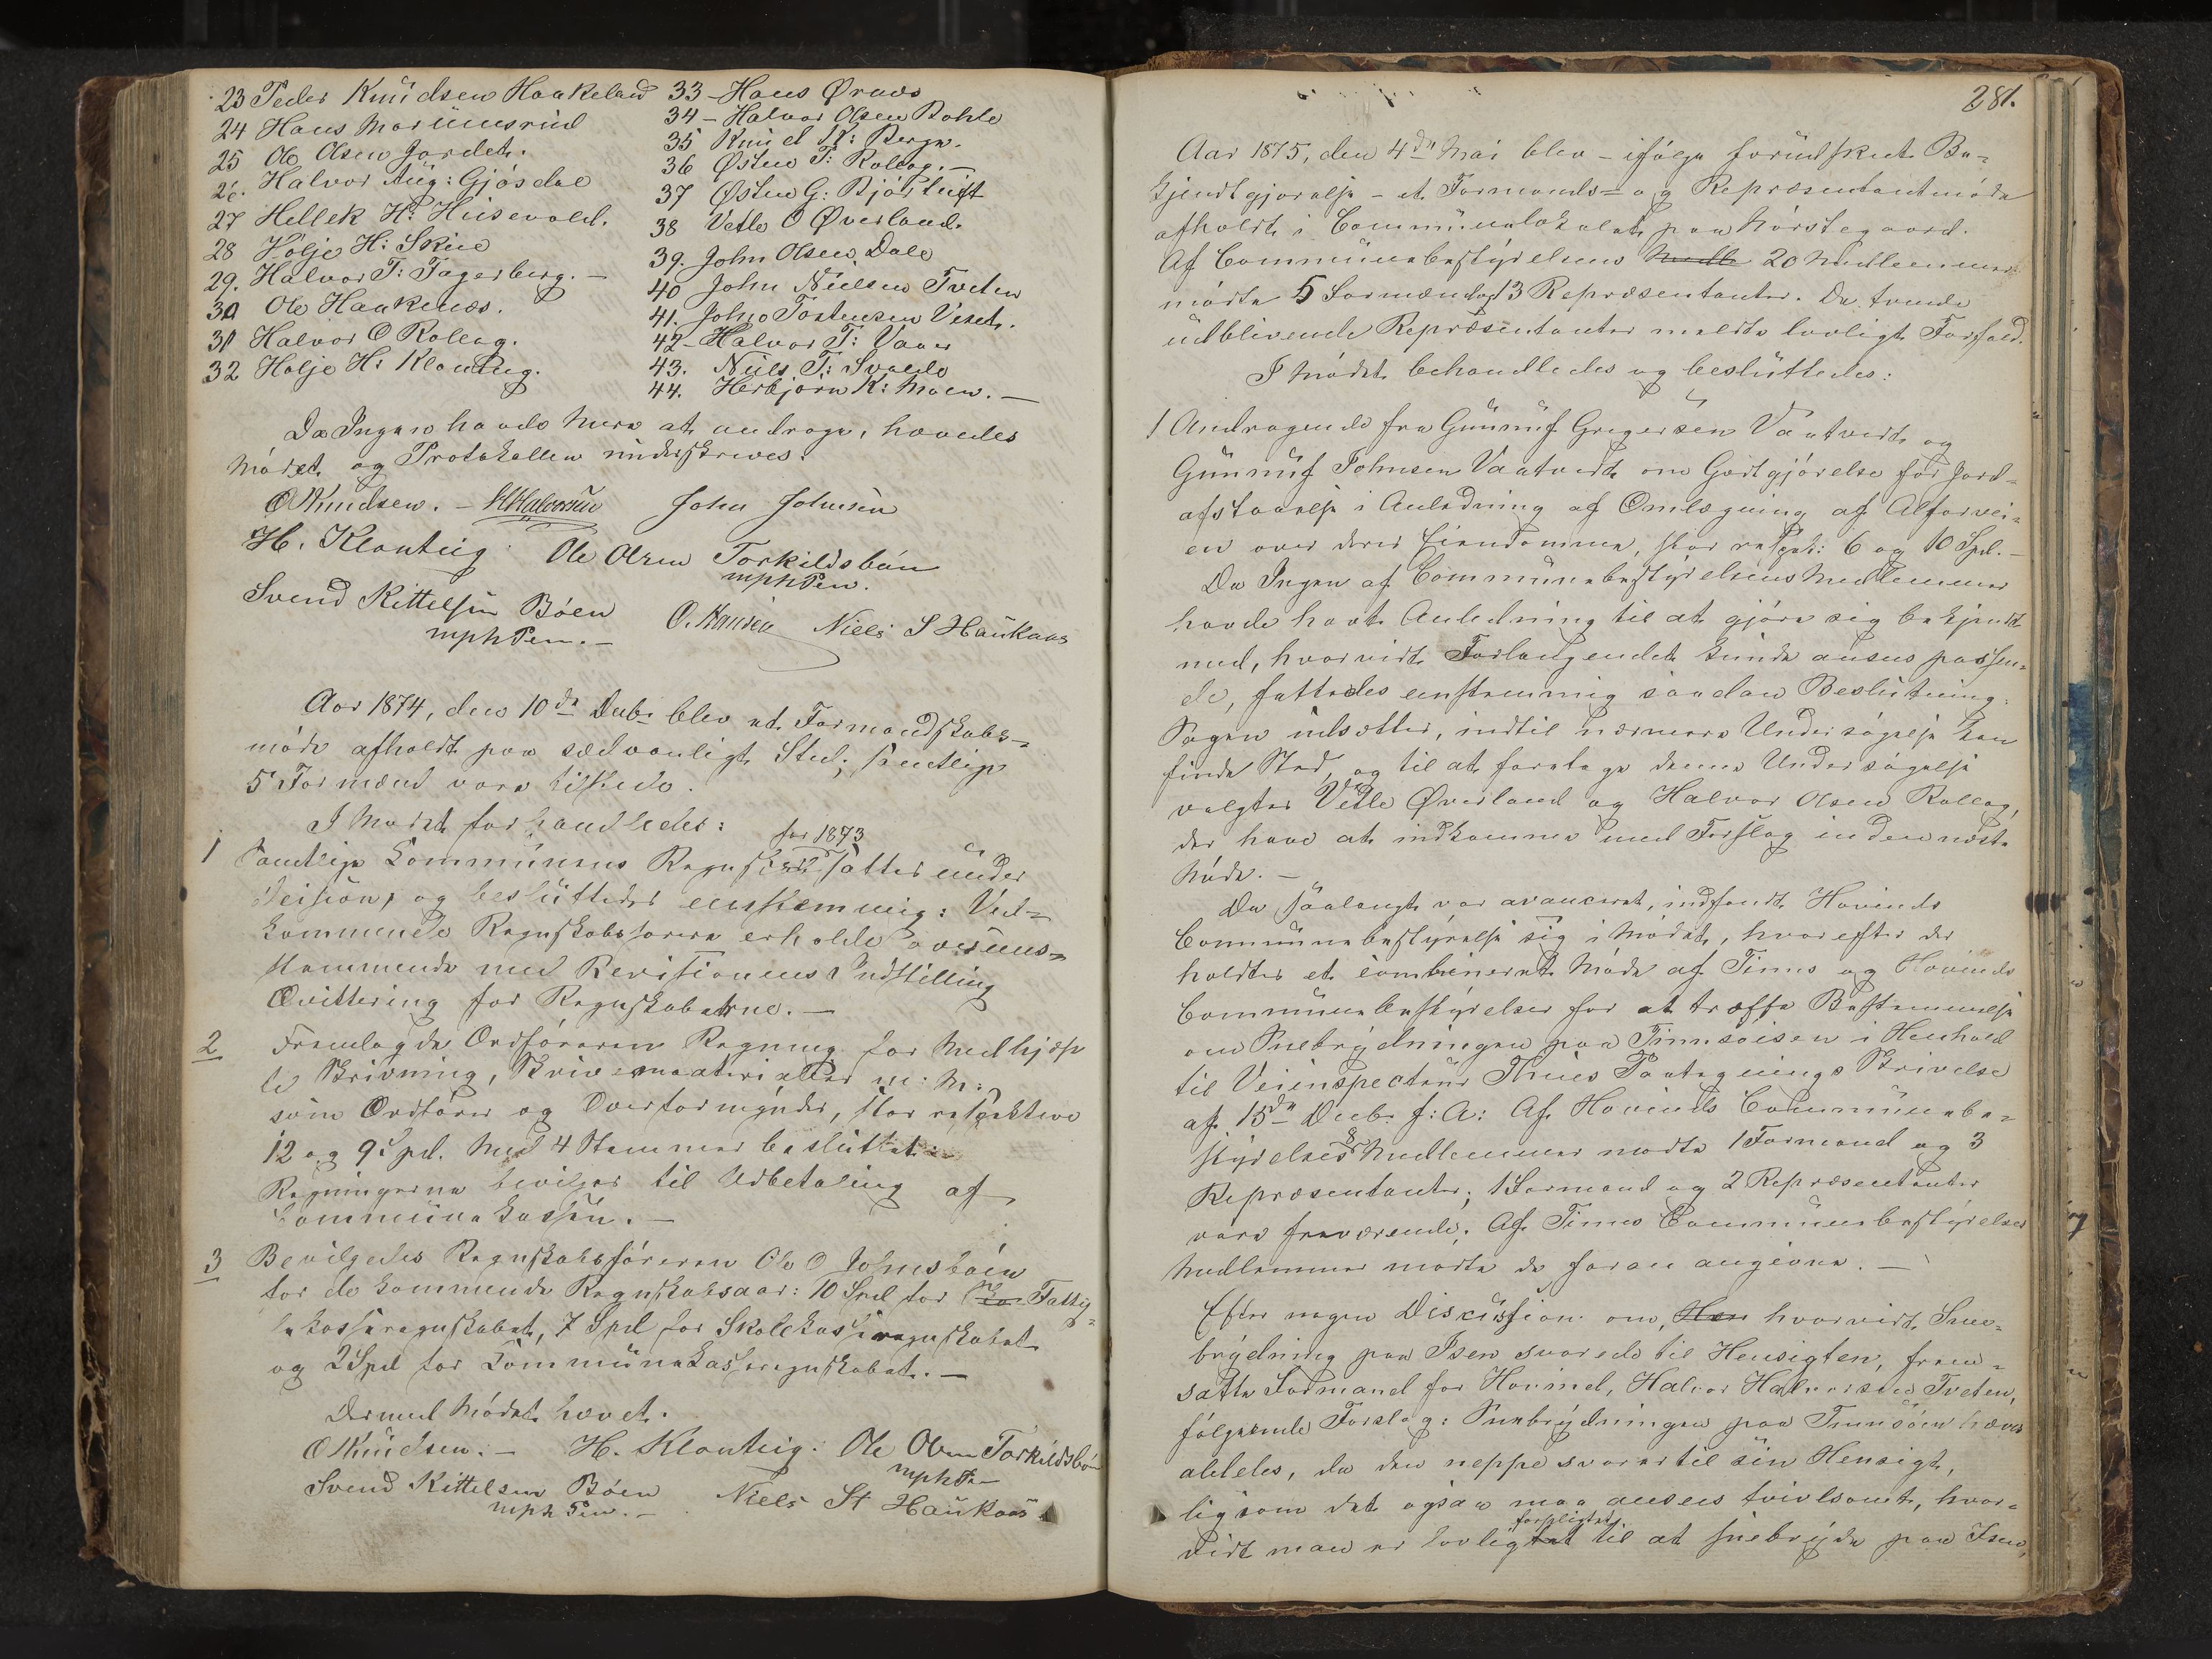 23 Peder Knudsen Haakeland
24 Hans Mariuusrud
25 Ole Olsen Jordet.
26. Halvor Aug: Gjøsdal
27 Hellek H: Husevold.
28 Holje H: Skue
29. Halvor T: Fagerberg. —
30 Ole Haakenæs.
31 Halvor O Rollag.
32 Holje H: Klonteig.
33 – Hans Ørnes
34 – Halvor Olsen Bohle
35 Knud K: Bergn.
36 Østen T: Rollag. —
37 Østen G: Bjørtuft
38 Vetle O Øverland.
39. John Olsen Dale
40 John Nielsen Tveten
41. John Tostensen Veset.
42 – Halvor T: Vaaer
43. Niels T: Svadde
44. Herbjørn K: Moen. —
Da Ingen havde mere at andrage, hævedes
Mødet og Protokollen underskreves.
O Knudsen. – H Halvorsen John Johnsen
H. Klonteig Ole Olsen Torkildsbøn
mphPen.
Svend Kittelsen Bøen O. Hansen Niels S Haukaas
mphPen. –
Aar 1874, den 10de Decbr blev et Formandskabs-
møde afholdt paa sædvanligt Sted; samtlige
5 Formænd vare tilstede.
I Mødet forhandledes:
for 1873
1 Samtlige Communens Regnskaber sattes under
Decision, og besluttedes enstemmig: Ved-
kommende Regnskabsførere erholde overens-
stemmende med Revisionens Indstilling
Qvittering for Regnskaberne. —
2 Fremlagde Ordføreren Regning for Medhjælp
til Skrivning, Skrivematerialier m: M:
som Ordfører og Overformynder, stor respektive
12 og 9 Spd. Med 4 Stemmer besluttet:
Regningerne bevilges til Udbetaling af
Communekassen. —
3 Bevilgedes Regnskabsføreren Ole O Johnsbøen
for de kommende Regnskabsaar: 10 Spd for Fattig-
kasseregnskabet, 7 Spd for Skolekasseregnskabet
og 2 Spd for Communekasseregnskabet. —
Dermed Mødet hævet.
O Knudsen. – H. Klonteig. Ole Olsen Torkildsbøn
mphPe–
Svend Kittelsen Bøen Niels St Haukaas
mph Pen. –
281.
Aar 1875, den 4de Mai blev – ifølge forudskeet Be-
kjendtgjørelse – et Formands- og Repræsentantmøde
afholdt i Communelokalet paa Mørstegaard.
Af Communebestyrelsens Medle 20 Medlemmer
mødte 5 Formænd og 13 Repræsentanter. De tvende
udblivende Repræsentanter meldte lovligt Forfald.
I Mødet behandledes og besluttedes:
1 Andragende fra Gunnuf Gregersen Vaatvedt og
Gunnuf Johnsen Vaatvedt om Godtgjørelse for Jord-
afstaaelse i Anledning af Omlægning af Alfarvei-
en over deres Eiendomme, stor respekt: 6 og 10 Spd. –
Da Ingen af Communebestyrelsens Medlemmer
havde havt Anledning til at gjøre sig bekjendt
med, hvorvidt Forlangendet kunde ansees passen-
de, fattedes enstemmig saadan Beslutning:
Sagen udsættes, indtil nærmere Undersøgelse kan
finde Sted, og til at foretage denne Undersøgelse
valgtes Vetle Øverland og Halvor Olsen Rollag,
der have at indkomme med Forslag inden næste
Møde. —
Da saalangt var avanceret, indfandt Hovinds
Communebestyrelse sig i Mødet, hvorefter der
holdtes et combineret Møde af Tinns og Hovinds
Communebestyrelser for at træffe Bestemmelse
om Snebrydningen paa Tinnsøisen i Henhold
til Veiinspecteur Thues Paategnings Skrivelse
af 15de Decbr f: A: Af Hovinds Communebe-
styrelses 8 Medlemmer mødte 1 Formand og 3
Repræsentanter; 1 Formand og 2 Repræsentanter
vare fraværende. Af Tinns Communebestyrelses
Medlemmer mødte de foran angivne. —
Efter nogen Discussion om, Hvor hvorvidt Snee-
brydning paa Isen svarede til Hensigten, frem-
satte Formand for Hovind, Halvor Halvorsen Tveten,
følgende Forslag: Snebrydningen paa Tinnsøen hæves
aldeles, da den neppe svarer til sin Hensigt,
ligesom det ogsaa maa ansees tvivlsomt, hvor-
forpligtet
vidt man er lovligtat til at snebryde paa Isen,